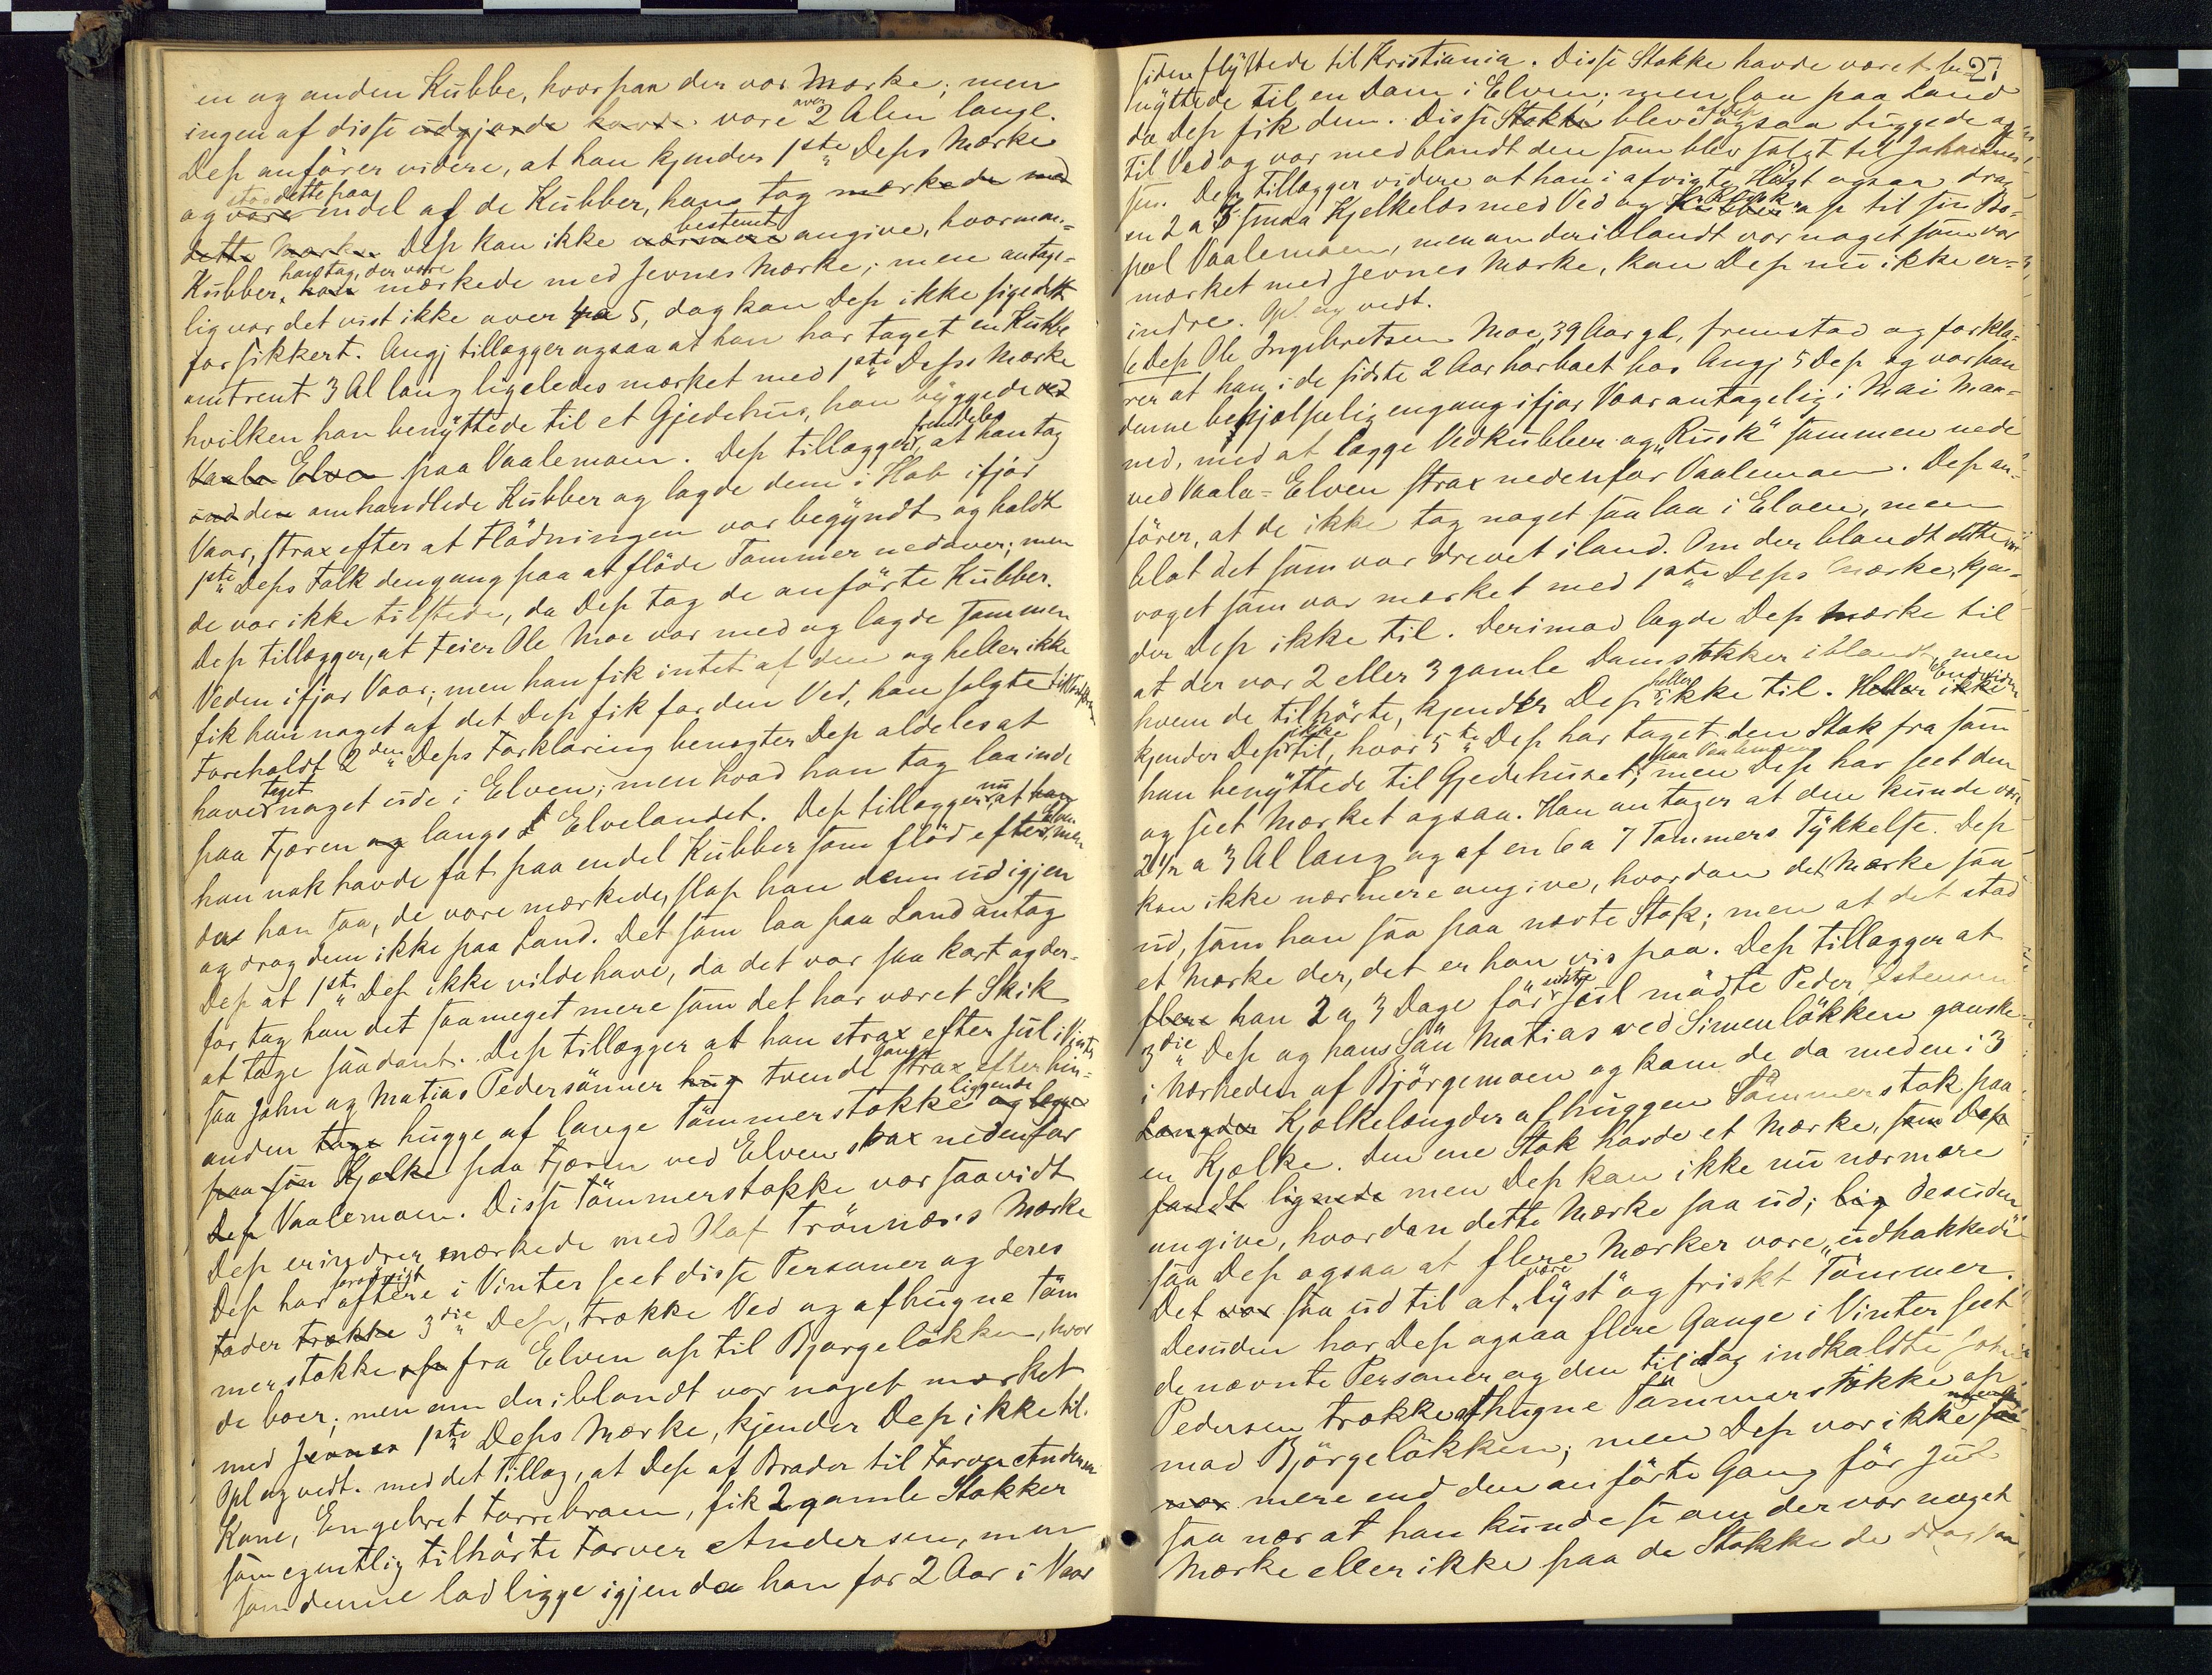 en og anden Kubbe, hvorpaa der var Mærke; men
ingen af disse udgjorde havde vare over 2 Alen lange.
Dep anförer videre, at han kjender 1ste Deps Mærke
og vare stod dette paa endel af de Kubber, hans tog mærkede med
dette Mærke. Dep kan ikke nærmere bestemt angive, hvorman-
Kubber, han hans tog, der vare mærkede med Jevnes Mærke; men antage-
lig var det vist ikke over 4 a 5, dog kan Dep ikke sige dette
for sikkert. Angj tillægger ogsaa at han har taget en Kubbe
omtrent 3 Al lang ligeledes mærket med 1ste Deps Mærke
hvilken han benyttede til et Gjedehus, han byggede ved
Vaala Elven paa Vaalemoen. Dep tillægger fremdeles, at han tog
ind den omhandlede Kubber og lagde dem i Hob ifjor
Vaar, strax efter at Flödningen var begyndt og holdt
1ste Deps Folk dengang paa at flöde Tømmer nedover; men
de var ikke tilstede, da Dep tog de anförte Kubber.
Dep tillægger, at Feier Ole Moe var med og lagde sammen
Veden ifjor Vaar; men han fik intet af den og heller ikke
fik han noget af det Dep fik for den Ved, han solgte til
Foreholdt 2den Deps Forklaring benegter Dep aldeles at
have taget noget ude i Elven; men hvad han tog laa inde
paa Fjæren og langs Elvelandet. Dep tillægger nu, at han
han nok havde fat paa endel Kubber som flöd efter Elven, men
das han saa, de vare mærkede, slap han dem ud igjen
og drog dem ikke paa Land. Det som laa paa Land antog
Dep at 1ste Dep ikke vilde have, da det var saa kort og der-
for tog han det saameget mere som det har været Skik
at tage saadant. Dep tillægger at han strax efter Jul i Vinter
saa John og Matias Pedersönner hug tvende Gange strax efter hin-
anden tage hugge af lange Tömmerstokke liggende og lange
paa sön Kjælke paa Fjæren ved Elven strax nedenfor
Dep Vaalemoen. Disse Tömmerstokke var saavidt
Dep erindrer mærkede med Olaf Trönnæs's Mærke
Dep har forövrigt oftere i Vinter seet disse Personer og deres
Fader trække 3die Dep, trække Ved og afhugne Töm
merstokke op fra Elven op til Bjørgelökken, hvor
de boer; men om der iblandt var noget mærket
med Jevnes 1ste Deps Mærke, kjender Dep ikke til.
Opl og vedt. med det Tillæg, at Dep af Broder til Farver Andersens
Kone, Engebret Farrebraen, fik 2 gamle Stokker
som egentlig tilhörte Farver Andersen, men
som denne lod ligge igjen da han for 2 Aar i Vaar
27
siden flyttede til Kristiania. Disse Stokke havde været be
nyttede til en Dam i Elven; men laa paa Land
da Dep fik dem. Disse Stokke blev af Dep ogsaa huggede op
til Ved og var med blandt den som blev solgt til Johannes
sen. Dep tillægger videre at han i afvigte Höst ogsaa drog
en 2 a 3 smaa Kjelkelæs med Ved og Kubber op til sin Bo-
pæl Vaalemoen, men om deriblandt var noget som var
mærket med Jevnes Mærke, kan Dep nu ikke er-
indre. Opl og vedt.
6 Dep Ole Ingebretsen Moe, 39 Aar gl, fremstod og forkla-
rer at han i de sidste 2 Aar har boet hos Angj 5 Dep og var han
denne behjælpelig engang ifjor Vaar antagelig i Mai Maa-
ned, med at lægge Vedkubber og "Rusk" sammen nede
ved Vaala-Elven strax nedenfor Vaalemoen. Dep an-
förer, at de ikke tog noget som laa i Elven, men
blot det som var drevet iland. Om der blandt dette var
noget som var mærket med 1ste Deps Mærke, kjen-
der Dep ikke til. Derimod lagde Dep Mærke til
at der var 2 eller 3 gamle Damstokker iblandt, men
hvem de tilhörte, kjender Dep heller ikke til. Heller ikke Endvidere
kjender Dep ikke til, hvor 5te Dep har taget den Stok fra som
han benyttede til Gjedehuset paa Vaalemoen; men Dep har seet den
og seet Mærket ogsaa. Han antager at den kunde være
2 1/2 a 3 Al lang og af en 6 a 7 Tommers Tykkelse. Dep
kan ikke nærmere angive, hvordan det Mærke saa
ud, som han saa paa nævte Stok; men at det stod
et Mærke der, det er han vis paa. Dep tillægger at
flere han 2 a 3 Dage för sidste Jul mödte Peder Estensen
3die Dep og hans Sön Matias ved Simenlökken ganske
i Nærheden af Bjørgemoen og kom de da med en i 3
Længder Kjælkelængder afhuggen Tömmerstok paa
en Kjælke. Den ene Stok havde et Mærke, som Dep
fandt lignede men Dep kan ikke nu nærmere
angive, hvordan dette Mærke saa ud; lig desuden
saa Dep ogsaa at flere Mærker vare "udhakkede"
Det var saa ud til at være "lyst" og friskt Tömmer.
Desuden har Dep ogsaa flere Gange i Vinter seet
de nævnte Personer og den til idag indkaldte John
Pedersen trække afhugne Tömmerstökke op
mod Bjørgelökken; men Dep var ikke saa
nær mere end den anförte Gang för Jul
saa nær at han kunde se om der var noget
Mærke eller ikke paa de Stokke de drog paa